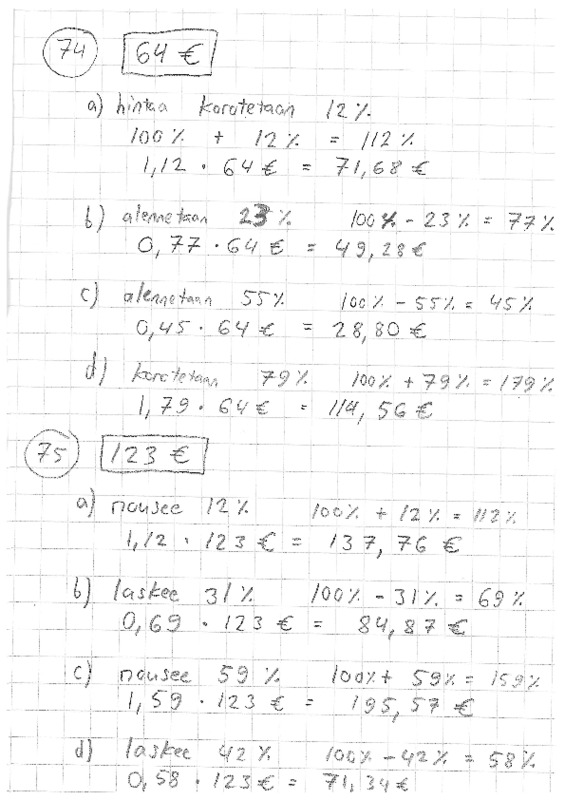 74 64 €
a) hintaa korotetaan 12 %
100 % + 12 % = 112 %
1,12 · 64 € = 71,68 €
b) alennetaan 23 % 100 % - 23 % = 77 %
0,77 · 64 € = 49,28 €
c) alennetaan 55 % 100 % - 55 % = 45 %
0,45 · 64 € = 28,80 €
d) korotetaan 79 % 100 % + 79 % = 179 %
1,79 · 64 € = 114,56 €
75 123 €
a) nousee 12 % 100 % + 12 % = 112 %
1,12 · 123 € = 137,76 €
b) laskee 31 % 100 % - 31 % = 69 %
0,69 · 123 € = 84,87 €
c) nousee 59 % 100 % + 59 % = 159 %
1,59 · 123 € = 195,57 €
d) laskee 42 % 100 % - 42 % = 58 %
0,58 · 123 € = 71,34 €